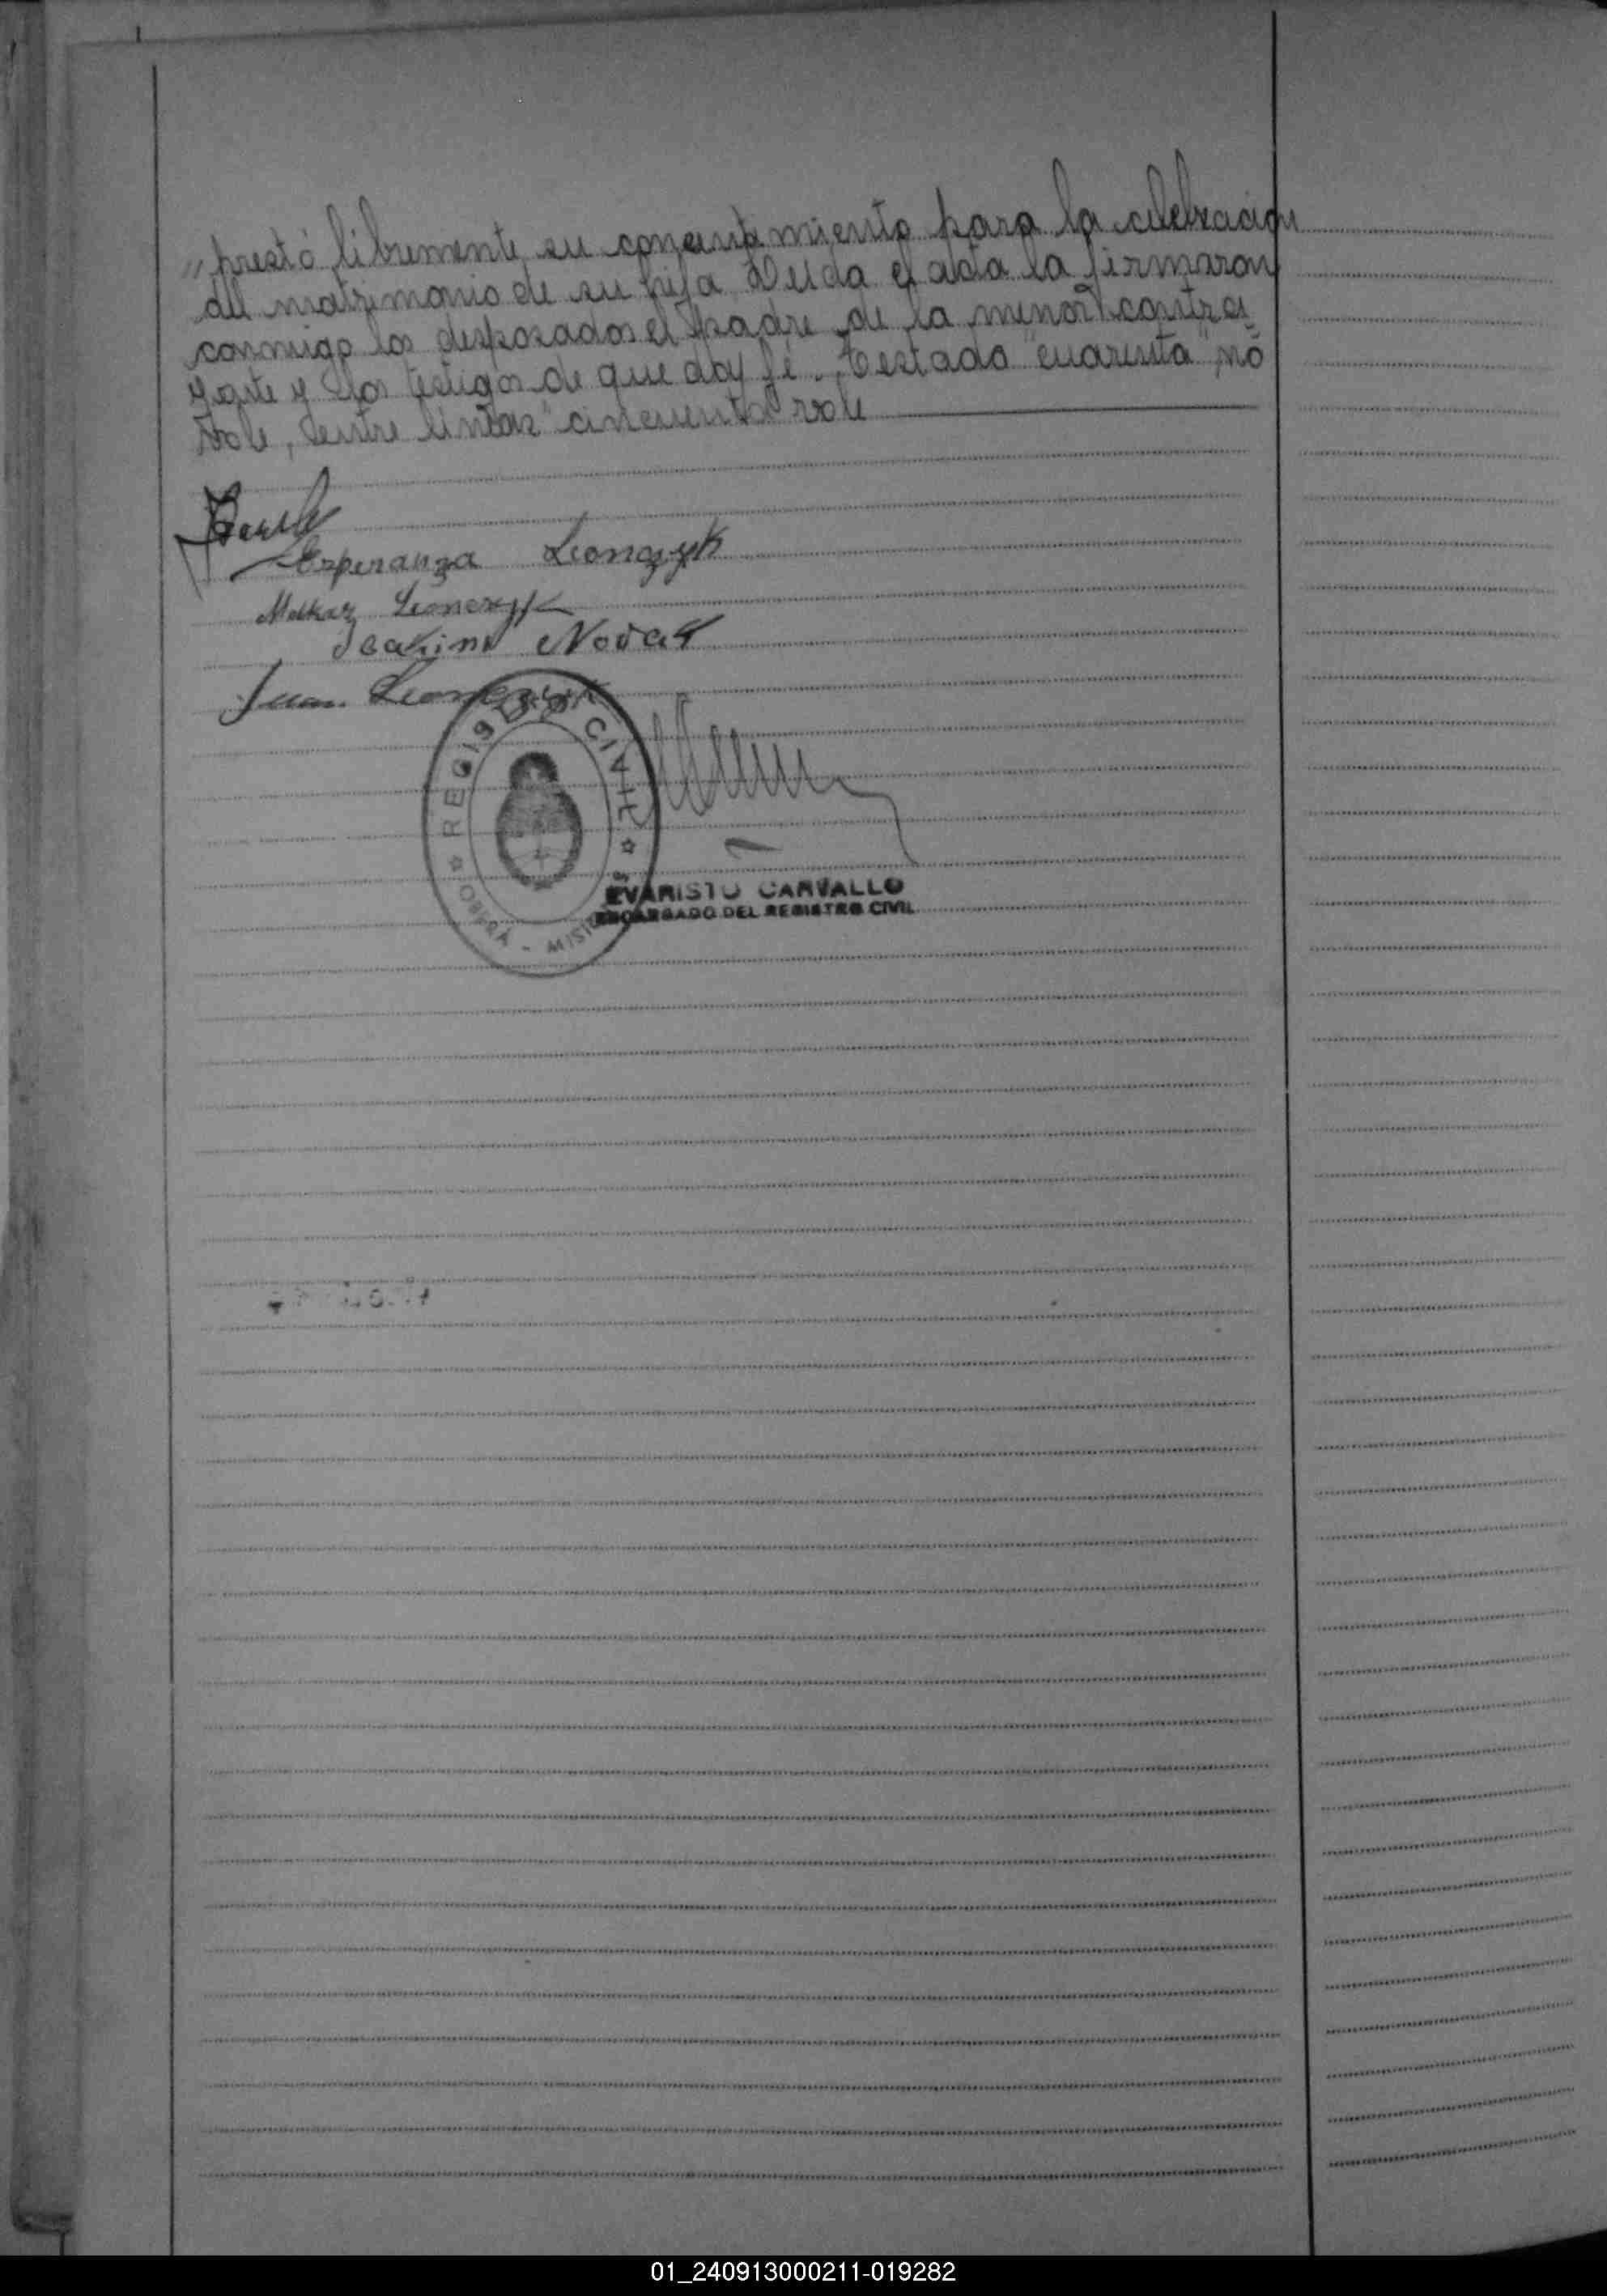 " prestó libremente su consentimiento para la celebración
del matrimonio de su hija. Leida el acta la firmaron
conmigo los desposados el padre de la menor contra
yente y los testigos de que doy fé. Testado "cuarenta" nó
vale, entre lineas "cincuenta" vale
Esperanza Leonczyk
Leonczyk
Novak
Juan Leonczyk
REGISTRO CIVIL
OBERA - MISIONES
EVARISTO CARVALLO
ENCARGADO DEL REGISTRO CIVIL
01_240913000211-019282